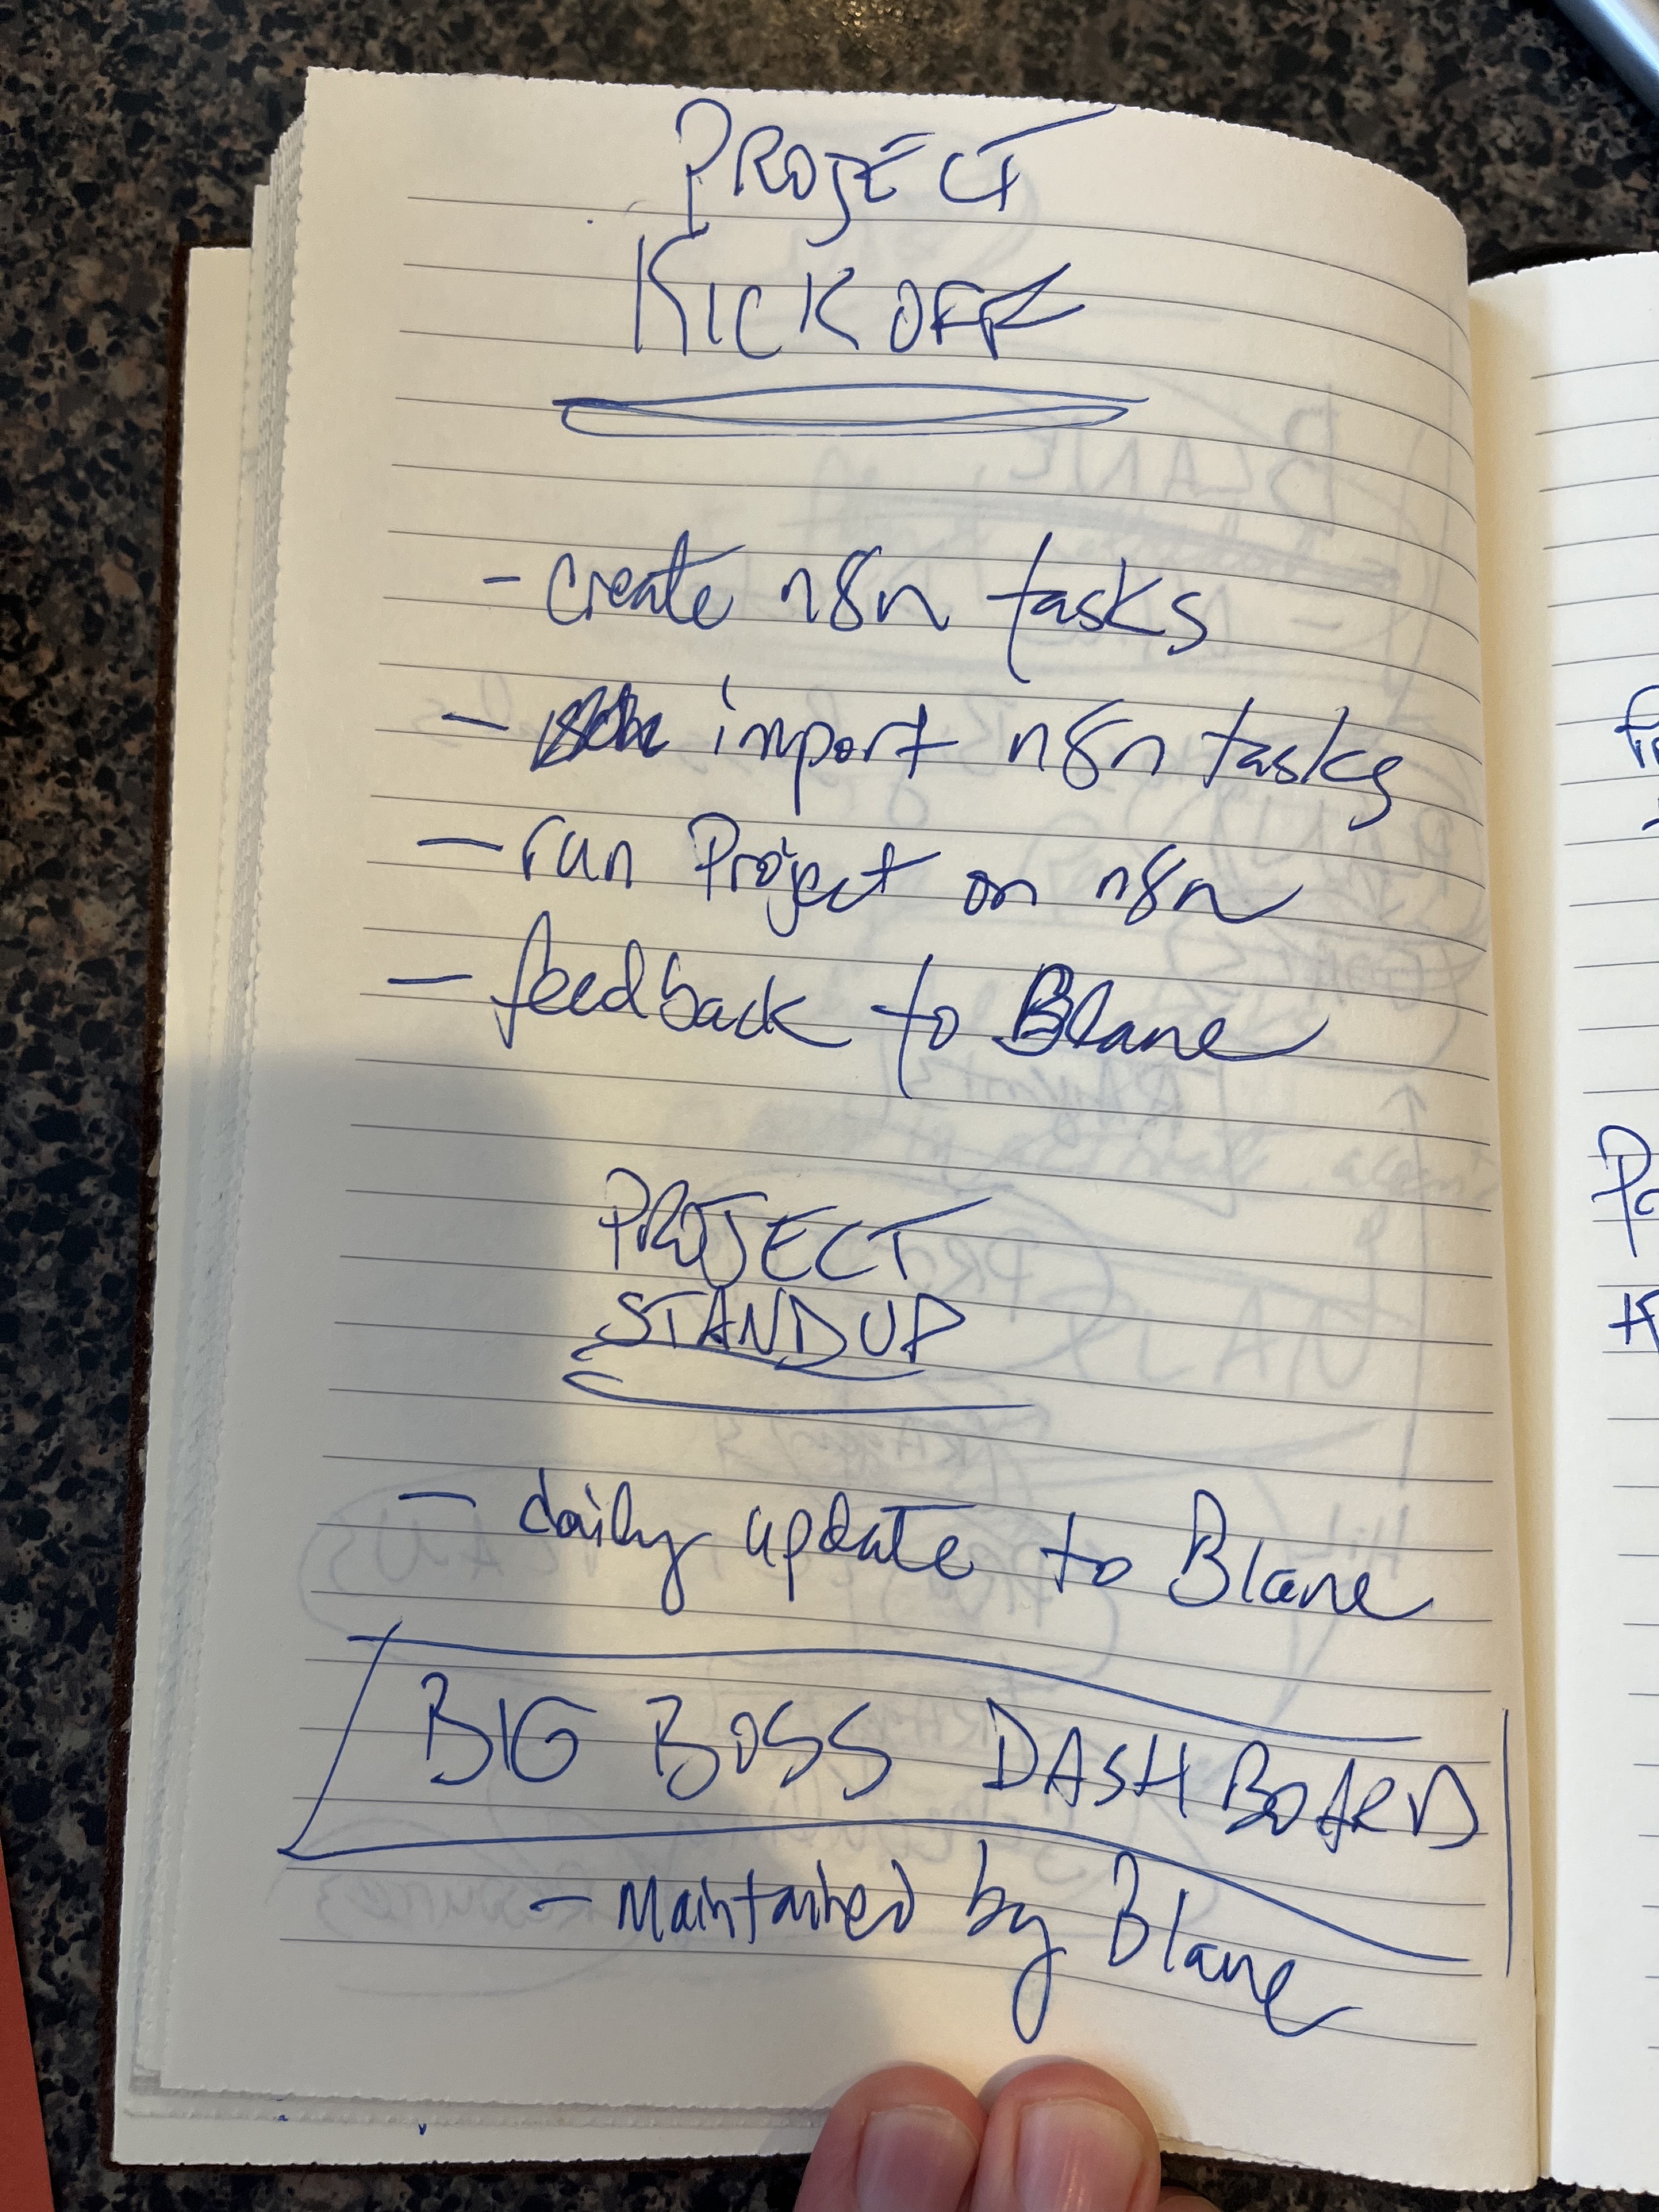 PROJECT
KICK OFF
- create n8n tasks
- import n8n tasks
- run Project on n8n
- feedback to Blane
PROJECT
STANDUP
- daily update to Blane
BIG BOSS DASHBOARD
- Maintained by Blane